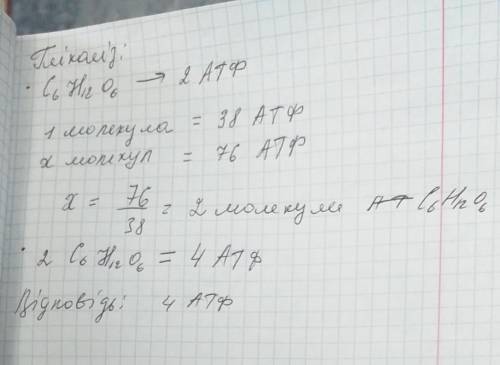 Гліколіз:
• C₆H₁₂O₆ → 2 АТФ
1 молекула = 38 АТФ
x молекул = 76 АТФ
x = 76/38 = 2 молекули C₆H₁₂O₆
• 2 C₆H₁₂O₆ = 4 АТФ
Відповідь: 4 АТФ